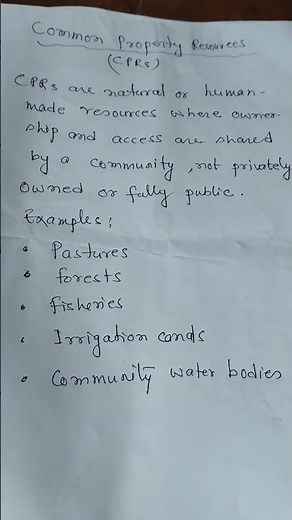 Common Property Resources
(CPRs)
CPRs are natural or human-
made resources where owner-
ship and access are shared
by a community, not privately
owned or fully public.
Examples:
• Pastures
• forests
• fisheries
• Irrigation cands
• Community water bodies